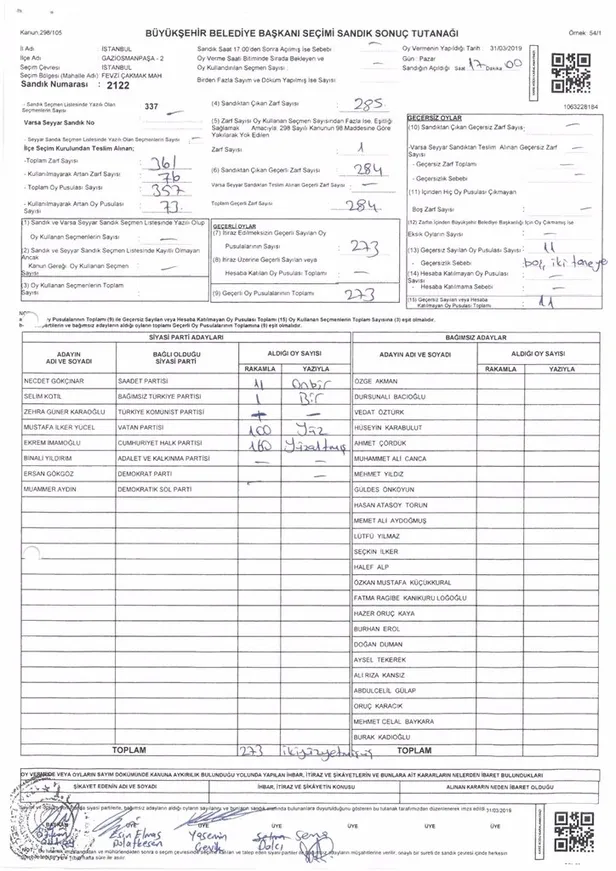 Kanun.298/105
BÜYÜKŞEHİR BELEDİYE BAŞKANI SEÇİMİ SANDIK SONUÇ TUTANAĞI
Örnek: 54/1
İl Adı : İSTANBUL
İlçe Adı : GAZİOSMANPAŞA - 2
Seçim Çevresi : İSTANBUL
Seçim Bölgesi (Mahalle Adı) : FEVZİ ÇAKMAK MAH
Sandık Numarası : 2122
Sandık Saat 17.00'den Sonra Açılmış İse Sebebi
Oy Verme Saati Bitiminde Sırada Bekleyen ve
Oy Kullandırılan Seçmen Sayısı :
Birden Fazla Sayım ve Döküm Yapılmış İse Sayısı
Oy Vermenin Yapıldığı Tarih : 31/03/2019
Gün : Pazar
Sandığın Açıldığı Saat 17 Dakika 00
1063228184
- Sandık Seçmen Listesinde Yazılı Olan Seçmenlerin Sayısı 337
Varsa Seyyar Sandık No
- Seyyar Sandık Seçmen Listesinde Yazılı Olan Seçmenlerin Sayısı
İlçe Seçim Kurulundan Teslim Alınan;
-Toplam Zarf Sayısı : 361
- Kullanılmayarak Artan Zarf Sayısı : 76
- Toplam Oy Pusulası Sayısı : 357
- Kullanılmayarak Artan Oy Pusulası Sayısı : 73
(1) Sandık ve Varsa Seyyar Sandık Seçmen Listesinde Yazılı Olup
Oy Kullanan Seçmenlerin Sayısı :
(2) Sandık ve Seyyar Sandık Seçmen Listesinde Kayıtlı Olmayan Ancak
Kanun Gereği Oy Kullanan Seçmen Sayısı
(3) Oy Kullanan Seçmenlerin Toplam Sayısı :
(4) Sandıktan Çıkan Zarf Sayısı : 285
(5) Zarf Sayısı Oy Kullanan Seçmen Sayısından Fazla İse, Eşitliği
Sağlamak Amacıyla 298 Sayılı Kanunun 98.Maddesine Göre
Yakılarak Yok Edilen
Zarf Sayısı : 1
(6) Sandıktan Çıkan Geçerli Zarf Sayısı : 284
Varsa Seyyar Sandıktan Teslim Alınan Geçerli Zarf Sayısı :
Toplam Geçerli Zarf Sayısı : 284
GEÇERLİ OYLAR
(7) İtiraz Edilmeksizin Geçerli Sayılan Oy
Pusulalarının Sayısı : 273
(8) İtiraz Üzerine Geçerli Sayılan veya
Hesaba Katılan Oy Pusulası Toplamı :
(9) Geçerli Oy Pusulalarının Toplamı : 273
GEÇERSİZ OYLAR
(10) Sandıktan Çıkan Geçersiz Zarf Sayısı :
-Varsa Seyyar Sandıktan Teslim Alınan Geçersiz Zarf Sayısı :
- Geçersiz Zarf Toplamı :
- Geçersizlik Sebebi :
(11) İçinden Hiç Oy Pusulası Çıkmayan
Boş Zarf Sayısı :
(12) Zarfın İçinden Büyükşehir Belediye Başkanlığı İçin Oy Çıkmamış İse
Eksik Oyların Sayısı :
(13) Geçersiz Sayılan Oy Pusulası Sayısı : 11
- Geçersizlik Sebebi :
(14) Hesaba Katılmayan Oy Pusulası Sayısı :
- Hesaba Katılmama Sebebi :
(15) Geçersiz Sayılan veya Hesaba Katılmayan Oy Pusulası Toplamı : 11
SİYASİ PARTİ ADAYLARI
BAĞIMSIZ ADAYLAR
ADAYIN ADI VE SOYADI
BAĞLI OLDUĞU SİYASİ PARTİ
ALDIĞI OY SAYISI
RAKAMLA YAZIYLA
ADAYIN ADI VE SOYADI
ALDIĞI OY SAYISI
RAKAMLA YAZIYLA
NECDET GÖKÇINAR SAADET PARTİSİ 11 Onbir ÖZGE AKMAN
SELİM KOTİL BAĞIMSIZ TÜRKİYE PARTİSİ 1 Bir DURSUNALI BACIOĞLU
ZEHRA GÜNER KARAOĞLU TÜRKİYE KOMÜNİST PARTİSİ VEDAT ÖZTÜRK
MUSTAFA İLKER YÜCEL VATAN PARTİSİ 100 Yüz HÜSEYİN KARABULUT
EKREM İMAMOĞLU CUMHURİYET HALK PARTİSİ 160 Yüzaltmış AHMET ÇÖRDÜK
BİNALİ YILDIRIM ADALET VE KALKINMA PARTİSİ — — MUHAMMET ALİ CANCA
ERSAN GÖKGÖZ DEMOKRAT PARTİ — MEHMET YILDIZ
MUAMMER AYDIN DEMOKRATİK SOL PARTİ GÜLDES ÖNKOYUN
HASAN ATASOY TORUN
MEMET ALİ AYDOĞMUŞ
LÜTFÜ YILMAZ
SEÇKİN İLKER
HALEF ALP
ÖZKAN MUSTAFA KÜÇÜKKURAL
FATMA RAGİBE KANIKURU LOĞOĞLU
HAZER ORUÇ KAYA
BURHAN EROL
DOĞAN DUMAN
AYSEL TEKEREK
ALİ RIZA KANSIZ
ABDULCELİL GÜLAP
ORUÇ KARACIK
MEHMET CELAL BAYKARA
BURAK KADIOĞLU
TOPLAM 273 ikiyüzyetmişüç TOPLAM
OY VERMEDE VEYA OYLARIN SAYIM DÖKÜMÜNDE KANUNA AYKIRILIK BULUNDUĞU YOLUNDA YAPILAN İHBAR, İTİRAZ VE ŞİKAYETLERİN VE BUNLARA AİT KARARLARIN NELERDEN İBARET BULUNDUKLARI
ŞİKAYET EDENİN ADI VE SOYADI
İHBAR, İTİRAZ VE ŞİKAYETİN KONUSU
ALINAN KARARIN NEDEN İBARET OLDUĞU
31/03/2019
BAŞKAN ÜYE ÜYE ÜYE ÜYE ÜYE ÜYE